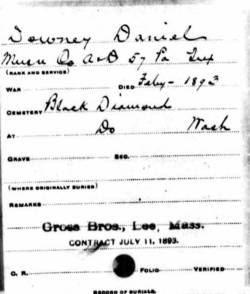 Downey Daniel
Co A & D 57 Pa Inf
(RANK AND SERVICE)
WAR DIED Feby - 1893
CEMETERY Black Diamond
AT Do Wash
GRAVE SEC.
(WHERE ORIGINALLY BURIED)
REMARKS
Gross Bros., Lee, Mass.
CONTRACT JULY 11, 1893.
O. R. FOLIO VERIFIED
RECORD OF BURIALS.